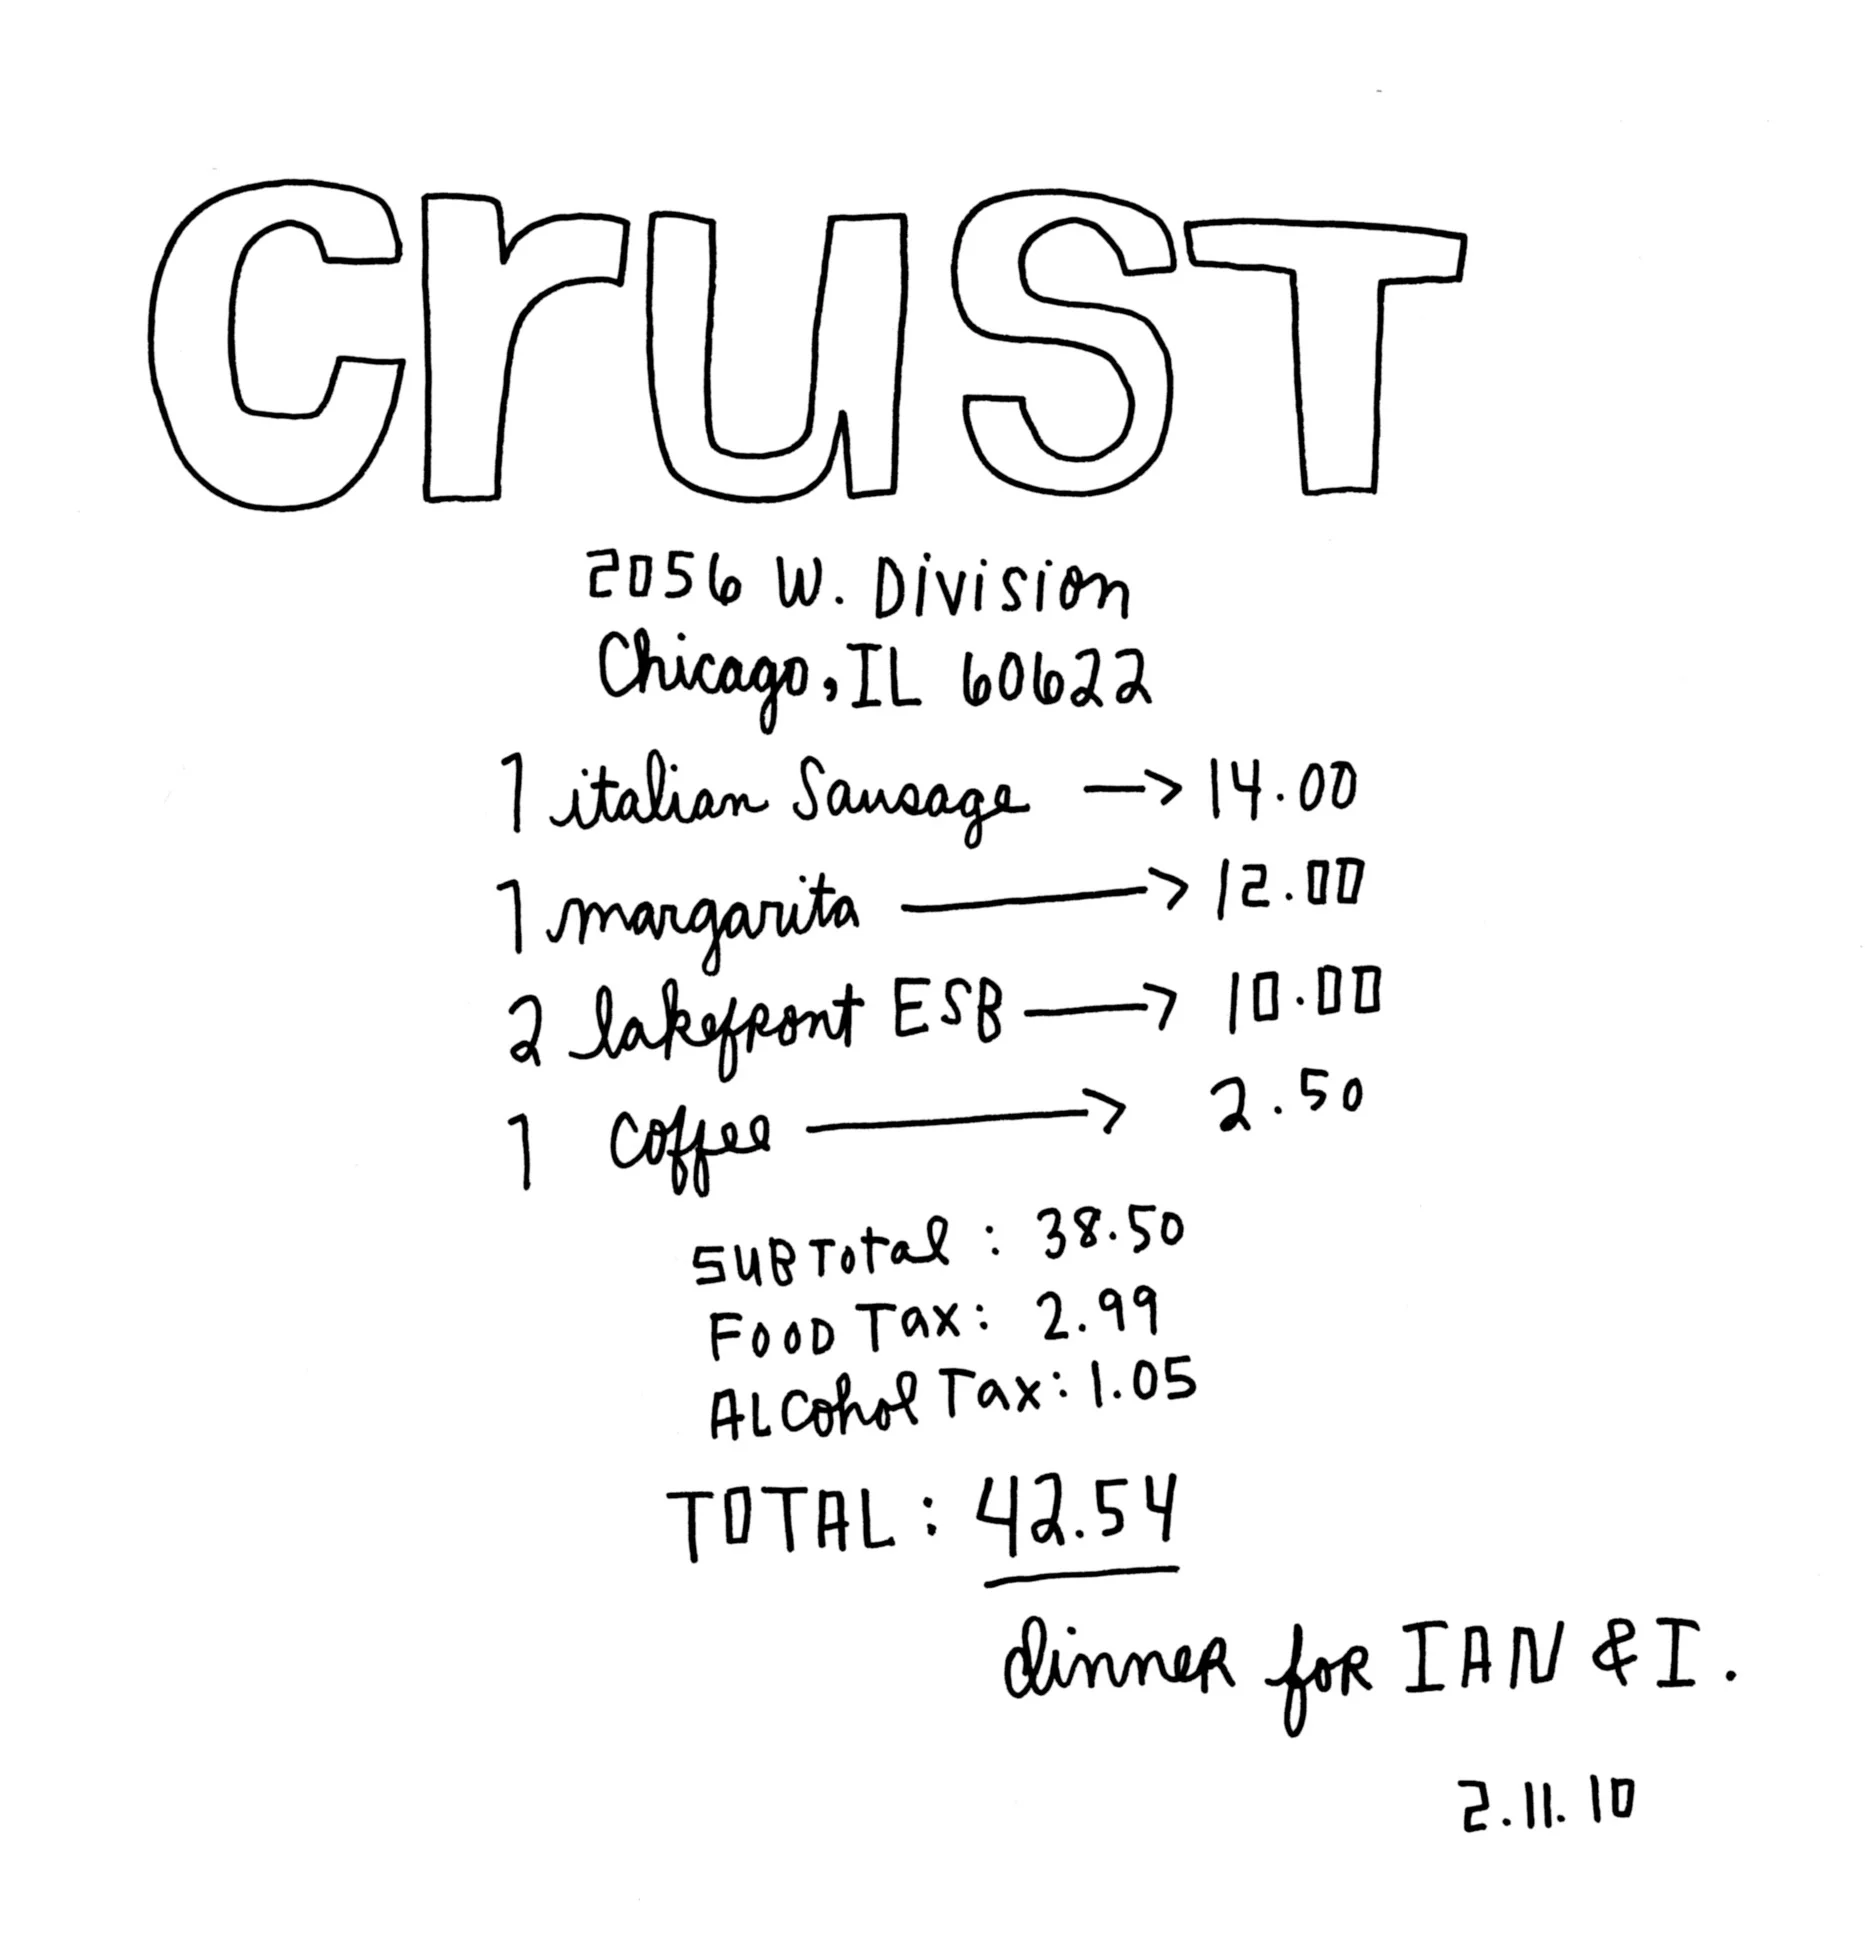 crusT
2056 W. Division
Chicago, IL 60622
1 italian Sausage → 14.00
1 margarita → 12.00
2 lakefront ESB → 10.00
1 Coffee → 2.50
SUBTotal : 38.50
FOOD Tax: 2.99
ALCohol Tax: 1.05
TOTAL : 42.54
dinneR foR IAN & I.
2.11.10